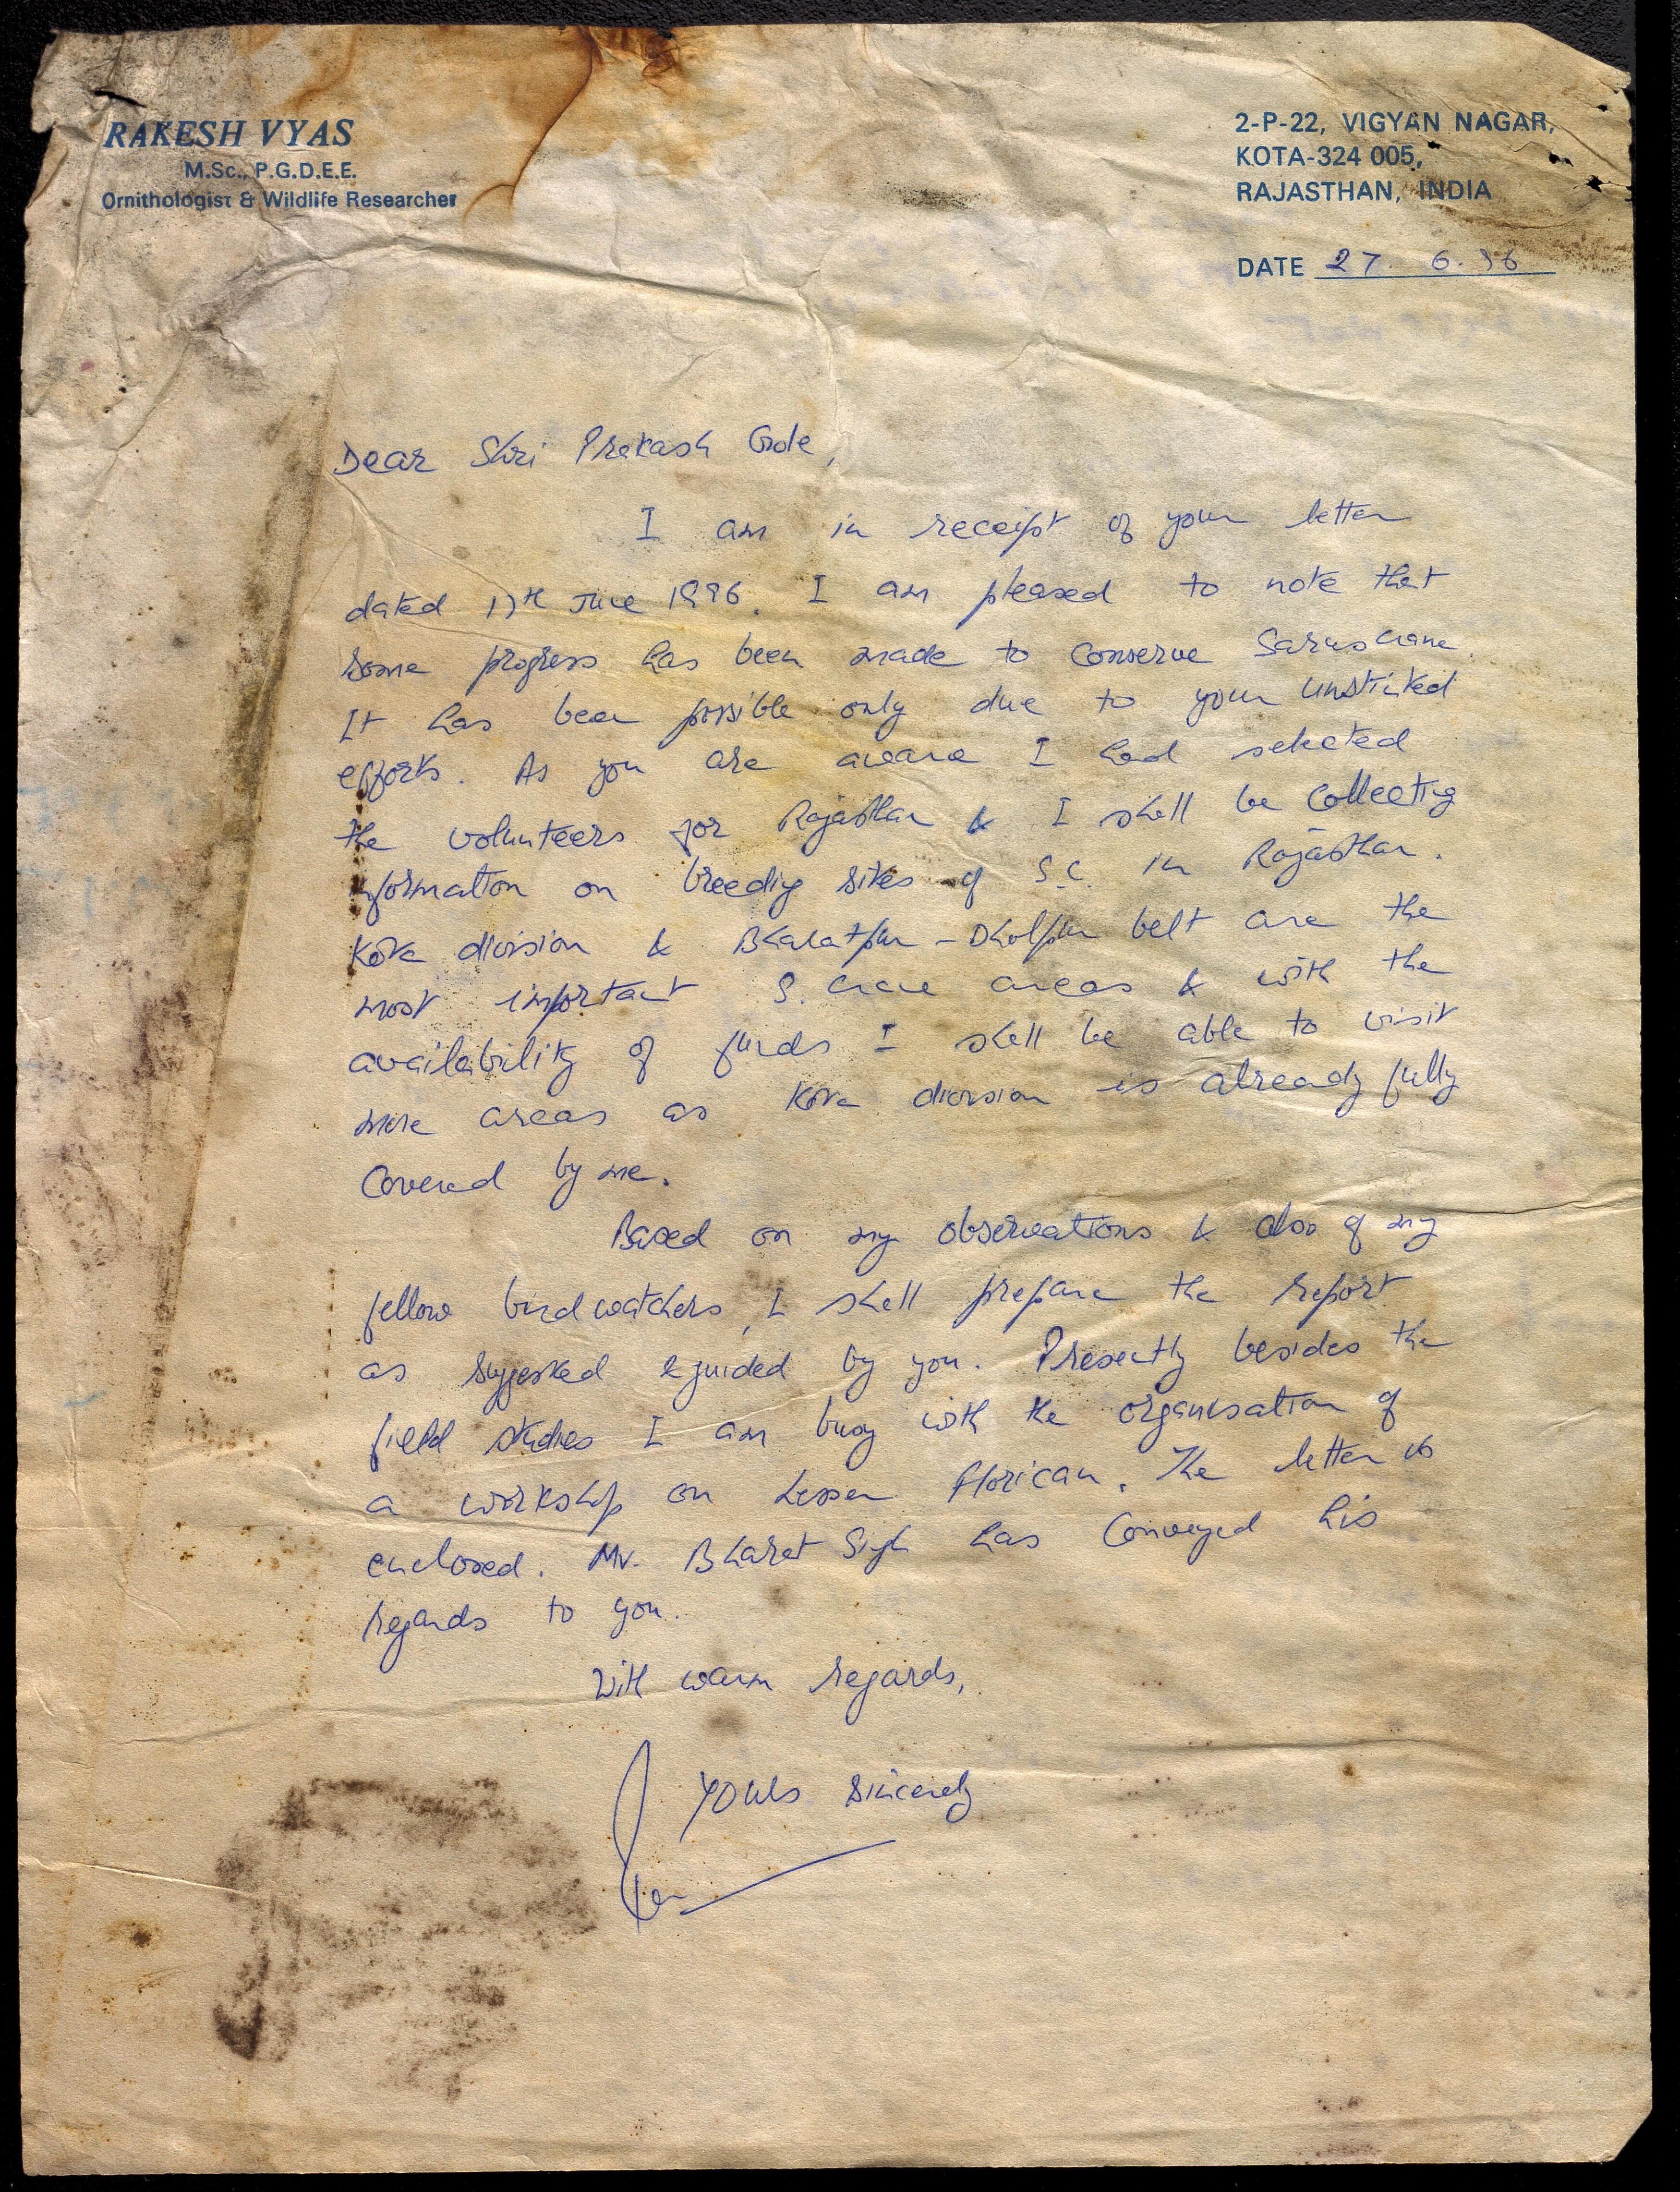 RAKESH VYAS
M.Sc., P.G.D.E.E.
Ornithologist & Wildlife Researcher
2-P-22, VIGYAN NAGAR,
KOTA-324 005,
RAJASTHAN, INDIA
DATE 27. 6. 96
Dear Shri Prakash Gole,
I am in receipt of your letter
dated 17th June 1996. I am pleased to note that
some progress has been made to conserve Sarus crane.
It has been possible only due to your unstinted
efforts. As you are aware I had selected
the volunteers for Rajasthan & I shall be collecting
information on breeding sites of S.C. in Rajasthan.
Kota division & Bharatpur - Dholpur belt are the
most important S. crane areas & with the
availability of funds I shall be able to visit
more areas as Kota division is already fully
covered by me.
Based on my observations & also of my
fellow birdwatchers, I shall prepare the report
as suggested & guided by you. Presently besides the
field studies I am busy with the organisation of
a workshop on Lesser Florican. The letter is
enclosed. Mr. Bharat Singh has conveyed his
regards to you.
With warm regards,
Yours sincerely